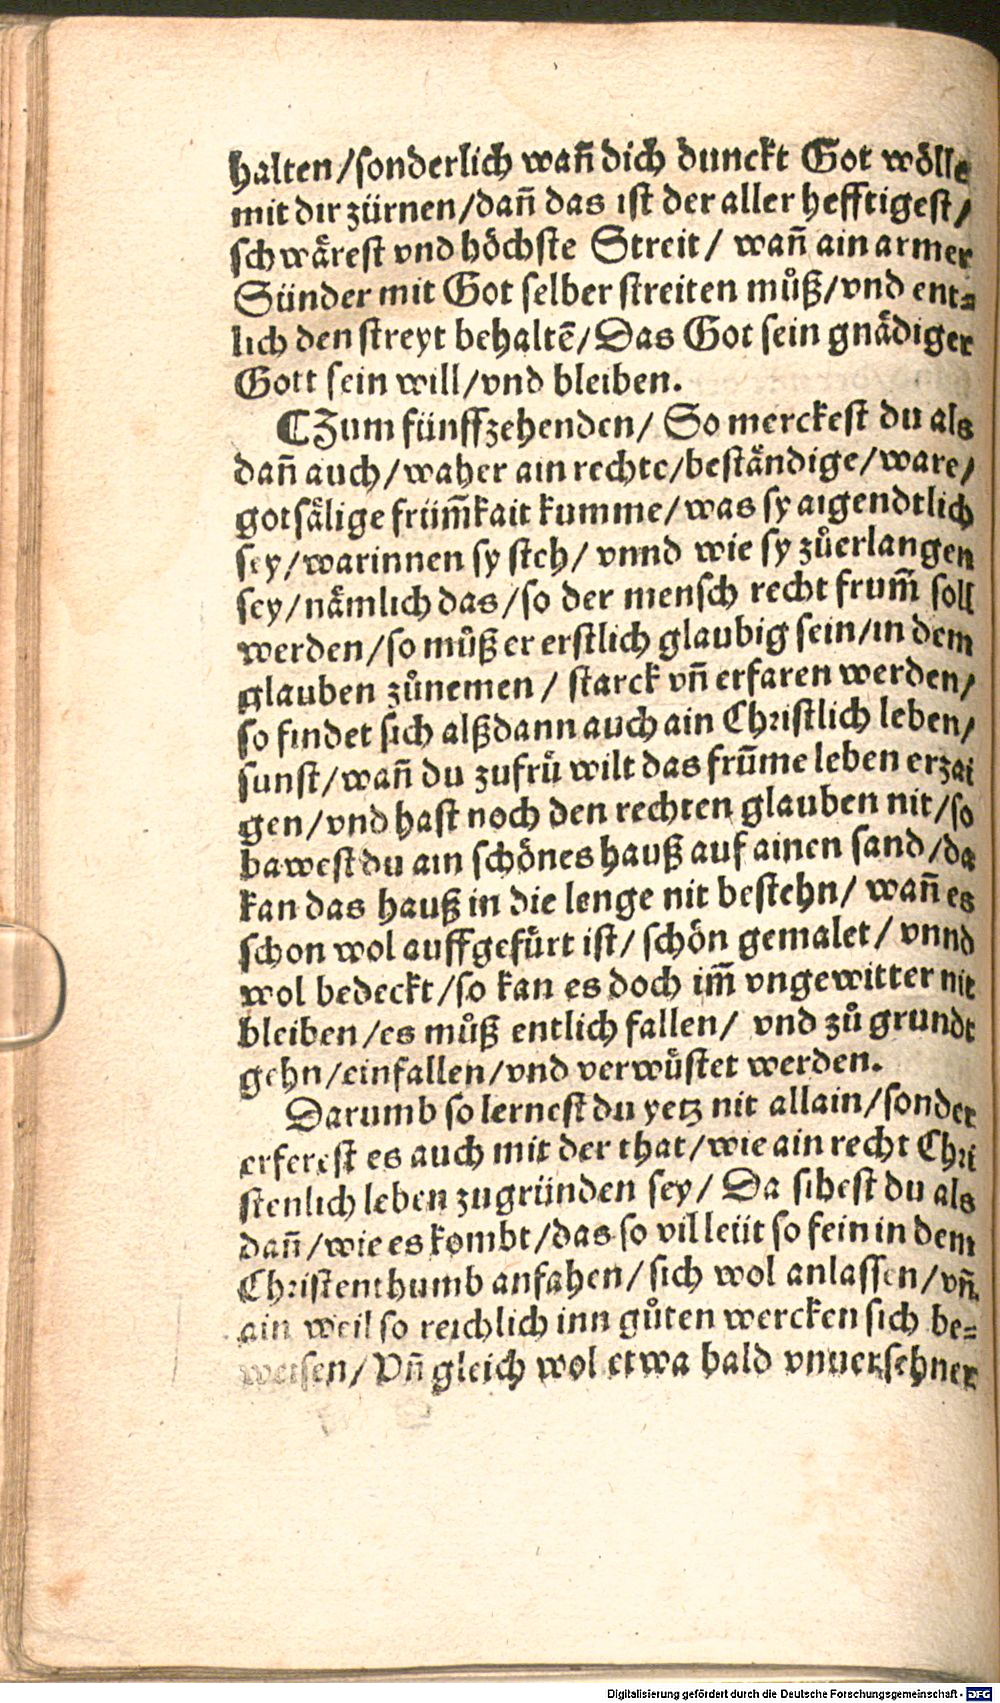 halten/sonderlich wañ dich dunckt Got wölle
mit dir zürnen/dañ das ist der aller hefftigest/
schwärest vnd höchste Streit/ wañ ain armer
Sünder mit Got selber streiten můß/vnd ent⸗
lich den streyt behaltẽ/Das Got sein gnädiger
Gott sein will/vnd bleiben.
¶Zum fünffzehenden/ So merckest du als
dañ auch/waher ain rechte/beständige/ware/
gotsälige früm̃kait kumme/was sy aigendtlich
sey/warinnen sy steh/ vnnd wie sy zůerlangen
sey/nämlich das/so der mensch recht frum̃ soll
werden/so můß er erstlich glaubig sein/in dem
glauben zůnemen/ starck vñ erfaren werden/
so findet sich alßdann auch ain Christlich leben/
sunst/wañ du zufrü wilt das frũme leben erzai
gen/vnd hast noch den rechten glauben nit/so
bawest du ain schönes hauß auf ainen sand/da
kan das hauß in die lenge nit bestehn/ wañ es
schon wol auffgefürt ist/ schön gemalet/ vnnd
wol bedeckt/so kan es doch im̃ vngewitter nit
bleiben/es můß entlich fallen/ vnd zů grundt
gehn/einfallen/vnd verwüstet werden.
Darumb so lernest du yetz nit allain/sonder
erferest es auch mit der that/wie ain recht Chri
stenlich leben zugründen sey/ Da sihest du als
dañ/wie es kombt/das so vil leüt so fein in dem
Christenthumb anfahen/sich wol anlassen/vñ
ain weil so reichlich inn gůten wercken sich be⸗
weisen/Vñ gleich wol etwa bald vnuersehner
Digitalisierung gefördert durch die Deutsche Forschungsgemeinschaft - DFG